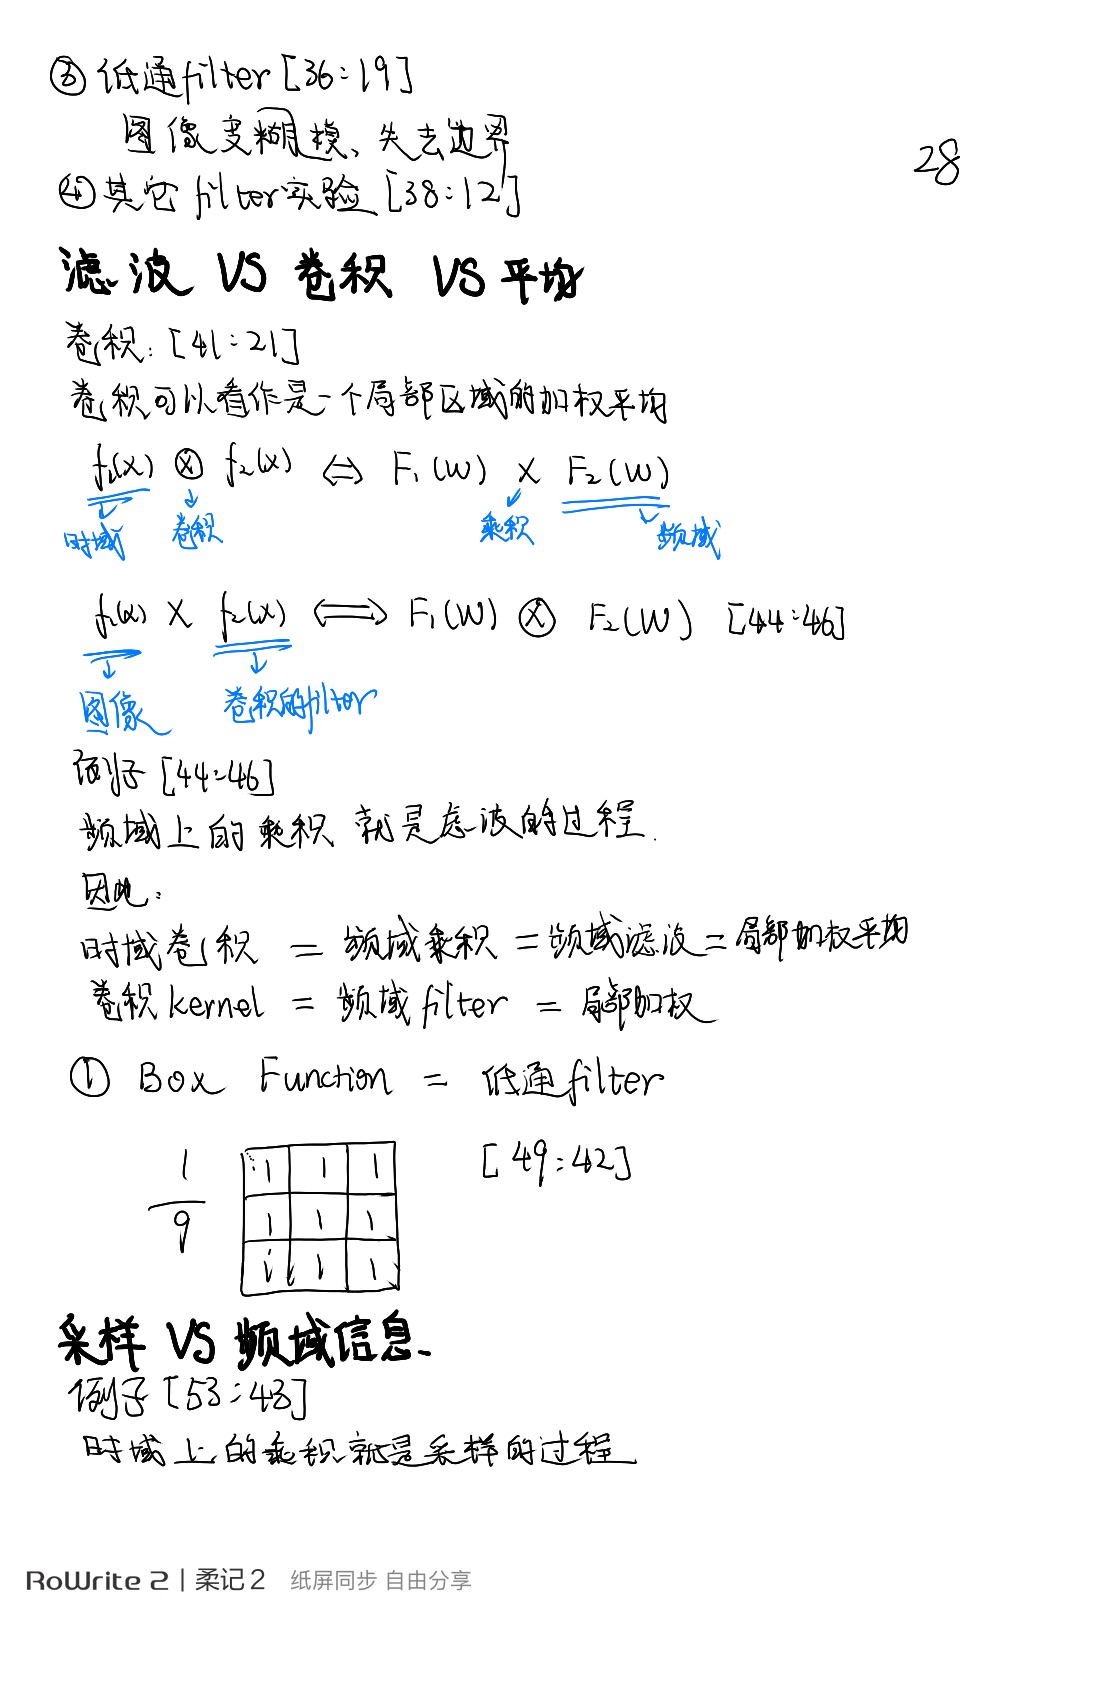 ③ 低通filter [36:19]
图像变糊模、失去边界
28
④ 其它 filter实验 [38:12]
滤波 VS 卷积 VS 平均
卷积: [41:21]
卷积可以看作是一个局部区域的加权平均
f₁(x) ⊗ f₂(x) ⇔ F₁(W) × F₂(W)
时域 卷积 乘积 频域
f₁(x) × f₂(x) ⟺ F₁(W) ⊗ F₂(W) [44:46]
图像 卷积的filter
例子 [44:46]
频域上的乘积 就是虑波的过程.
因此:
时域卷积 = 频域乘积 = 频域滤波 = 局部加权平均
卷积kernel = 频域filter = 局部加权
① Box Function = 低通filter
1/9
1 1 1
1 1 1
1 1 1
[49:42]
采样 VS 频域信息.
例子 [53:43]
时域上的乘积就是采样的过程
RoWrite 2 | 柔记2 纸屏同步 自由分享